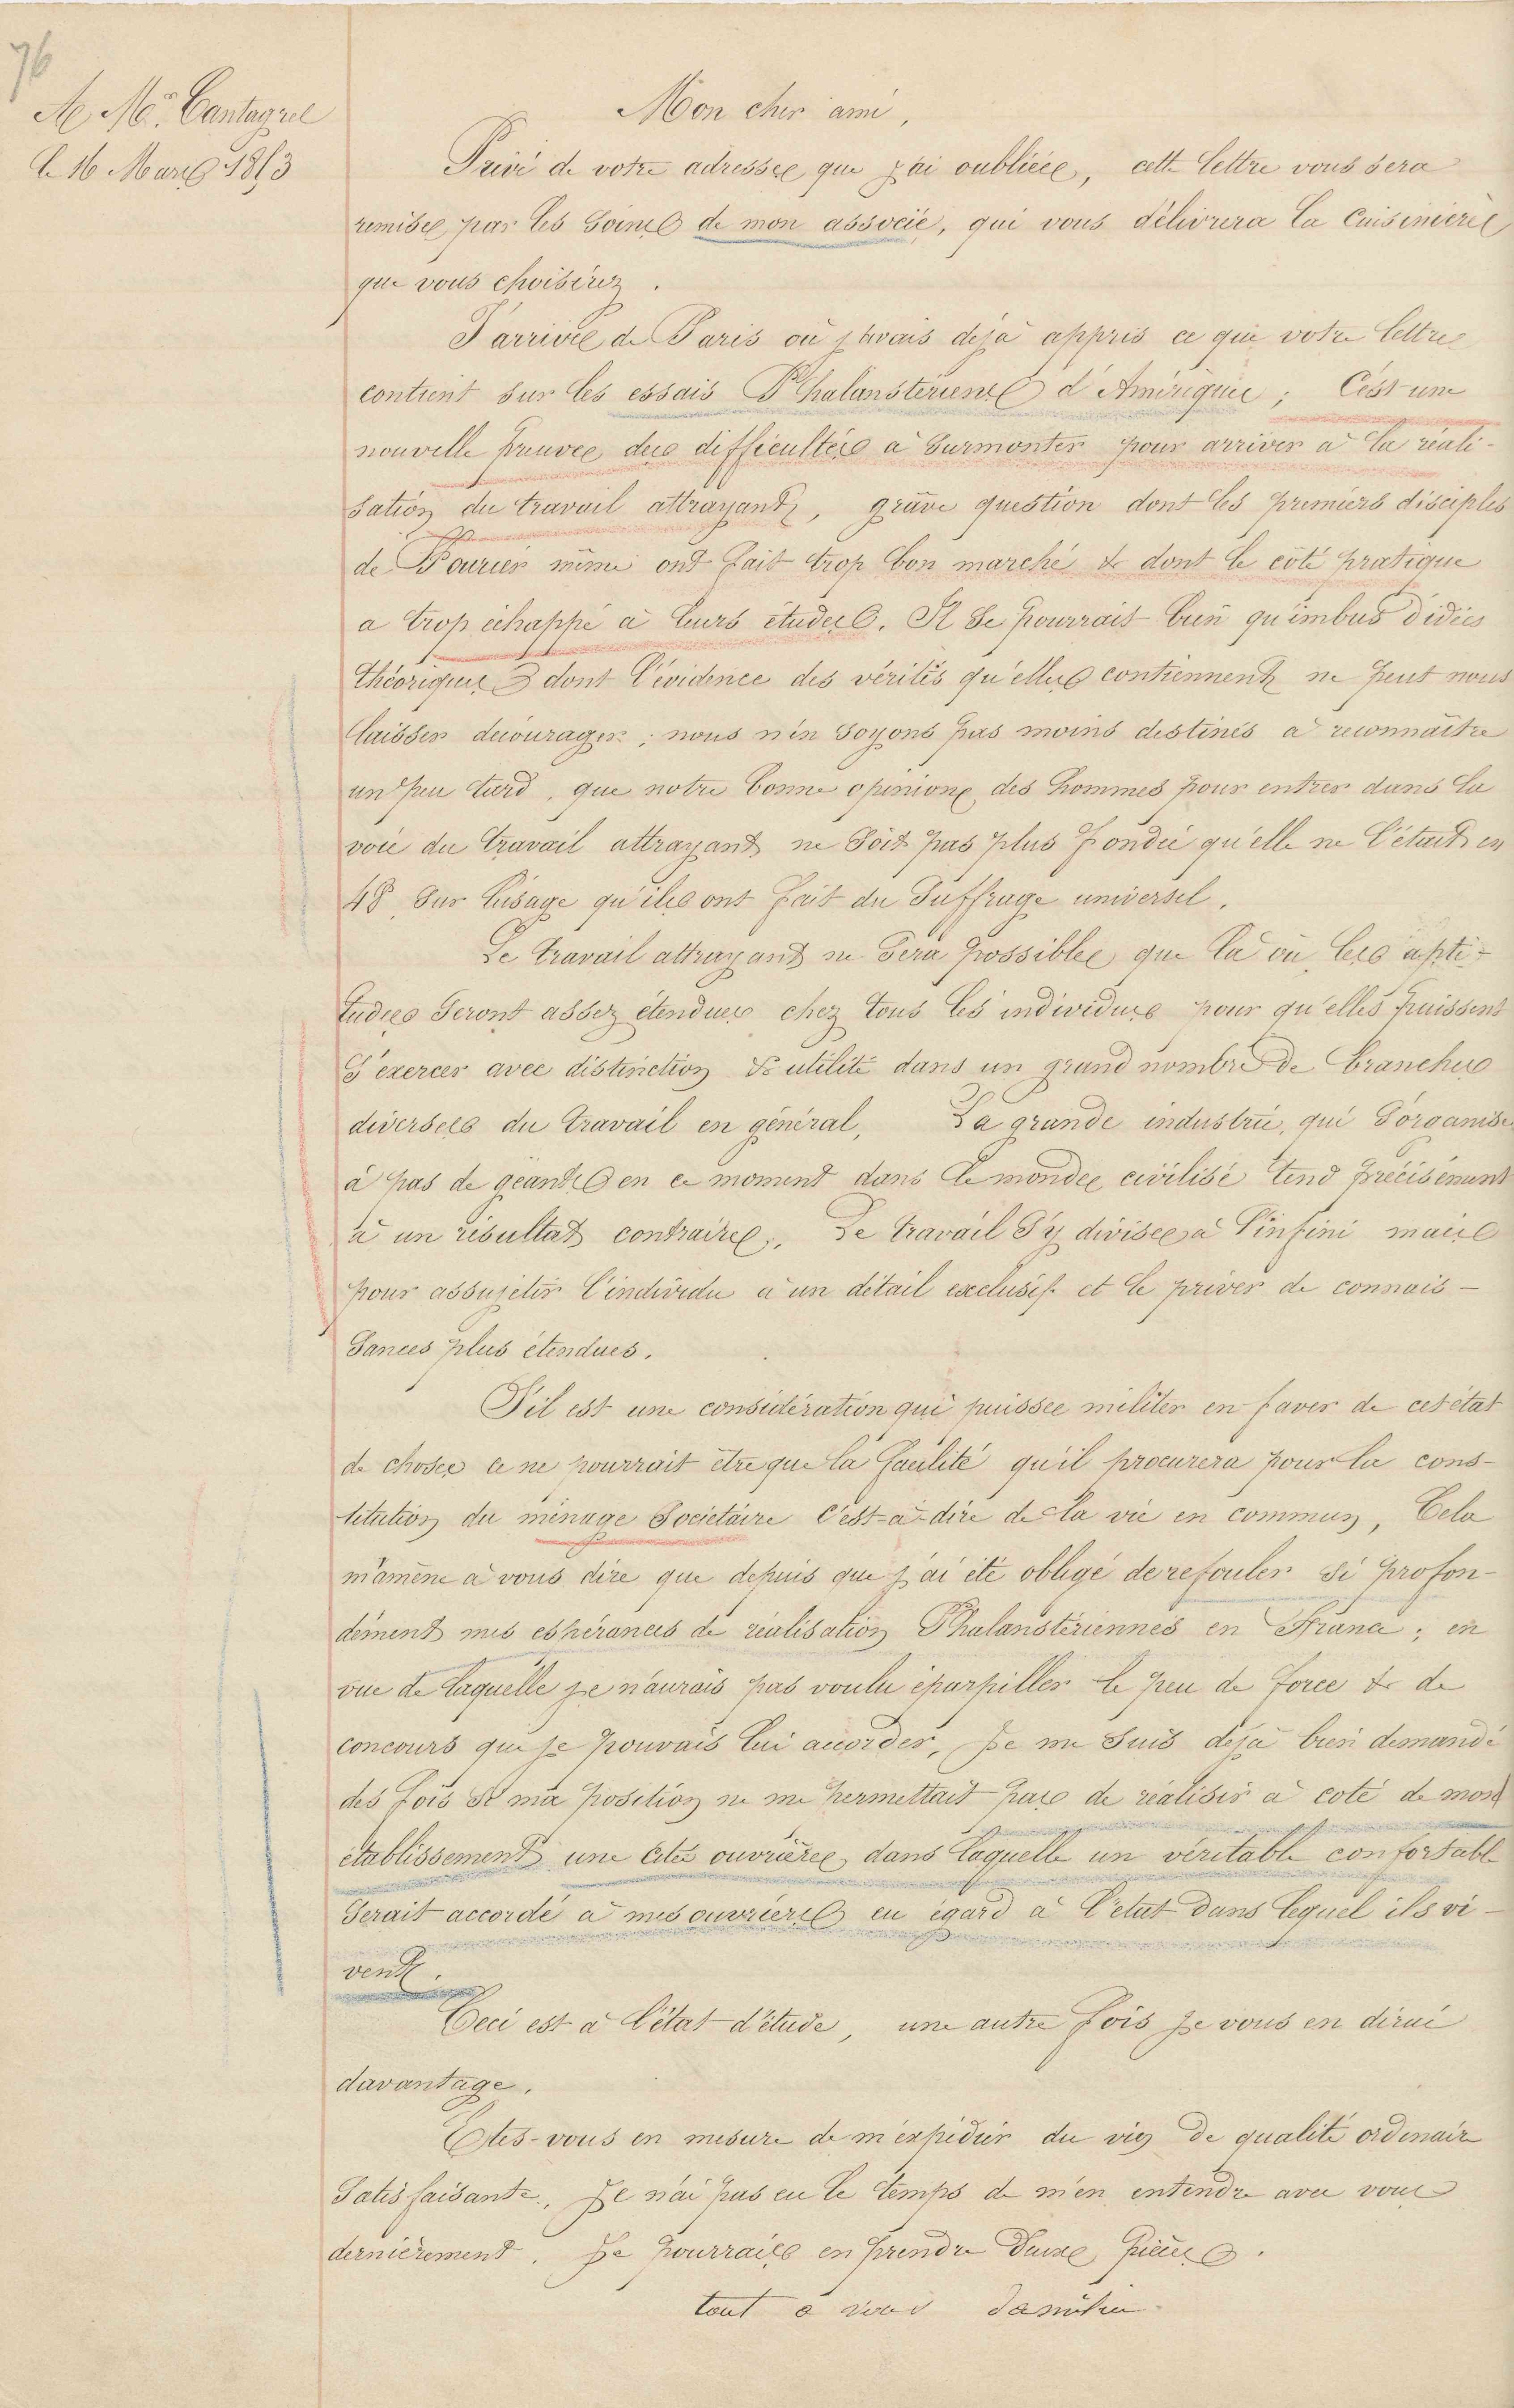 76
A Mr. Cantagrel
Le 16 Mars 1853
Mon cher ami,
Privé de votre adresse que j'ai oubliée, cette lettre vous sera
remise par les soins de mon associé, qui vous délivrera la Cuisinière
que vous choisirez.
J'arrive de Paris où j'avais déjà appris ce que votre lettre
contient sur les essais Phalanstériens d'Amérique; C'est une
nouvelle preuve des difficultés à surmonter pour arriver à la réali-
sation du travail attrayant, grave question dont les premiers disciples
de Fourier même ont fait trop bon marché & dont le côté pratique
a trop échappé à leurs études. Il se pourrait bien qu'imbus d'idées
théoriques dont l'évidence des vérités qu'elles contiennent ne peut nous
laisser décourager; nous n'en soyons pas moins destinés à reconnaître
un peu tard, que notre bonne opinion des hommes pour entrer dans la
voie du travail attrayant ne soit pas plus fondée qu'elle ne l'était en
48, sur l'usage qu'ils ont fait du Suffrage universel.
Le travail attrayant ne sera possible que là où les apti-
tudes seront assez étendues chez tous les individus pour qu'elles puissent
s'exercer avec distinction & utilité dans un grand nombre de branches
diverses du travail en général, La grande industrie, qui s'organise
à pas de géants en ce moment dans le monde civilisé tend précisément
à un résultat contraire. Le travail s'y divise à l'infini mais
pour assujetir l'individu à un détail exclusif et le priver de connais-
sances plus étendues.
S'il est une considération qui puisse militer en faver de cet état
de chose ce ne pourrait être que la facilité qu'il procurera pour la cons-
titution du ménage Sociétaire c'est-à-dire de la vie en commun, Cela
m'amène à vous dire que depuis que j'ai été obligé de refouler si profon-
dément mes espérances de réalisation Phalanstériennes en France; en
vue de laquelle je n'aurais pas voulu éparpiller le peu de force & de
concours que je pouvais lui accorder, Je me suis déjà bien demandé
des fois si ma position ne me permettait pas de réaliser à coté de mon
établissement une cité ouvrière, dans laquelle un véritable confortable
serait accordé à mes ouvriers eu égard à l'état dans lequel ils vi-
vent.
Ceci est à l'état d'étude, une autre fois je vous en dirai
davantage.
Etes-vous en mesure de m'expédier du vin de qualité ordinaire
satisfaisante, Je n'ai pas eu le temps de m'en entendre avec vous
dernièrement. Je pourrais en prendre deux pièces.
tout à vous d'amitié